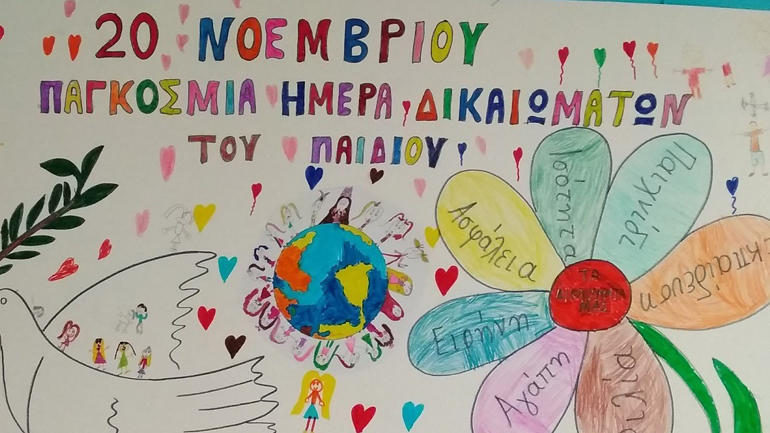 20 ΝΟΕΜΒΡΙΟΥ
ΠΑΓΚΟΣΜΙΑ ΗΜΕΡΑ ΔΙΚΑΙΩΜΑΤΩΝ
ΤΟΥ ΠΑΙΔΙΟΥ
Ασφάλεια
Ισότητα
Παιχνίδι
Εκπαίδευση
Ειρήνη
Αγάπη
ΤΑ
ΔΙΚΑΙΩΜΑΤΑ
ΜΑΣ